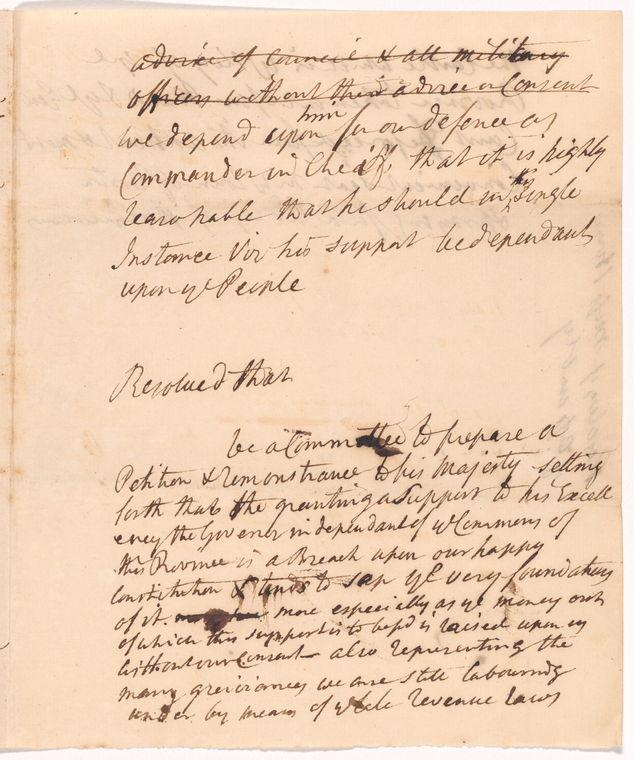 advice of Council & all military
officers without their advice or Consent
we depend upon him for our defence as
Commander in Cheiff, that it is highly
reasonable that he should in this single
Instance viz his support be dependant
upon ye People
Resolved that
be a Committee to prepare a
Petition & remonstrance to his Majesty setting
forth that the granting a Support to his Excell
ency the Governor independant of ye Commons of
this Province is a Breach upon our happy
Constitution & tends to sap ye very foundation
of it. more especially as ye money out
of which this support is to be pd is raised upon us
without our Consent also representing the
many greivances we are still labouring
under by means of ye late revenue laws